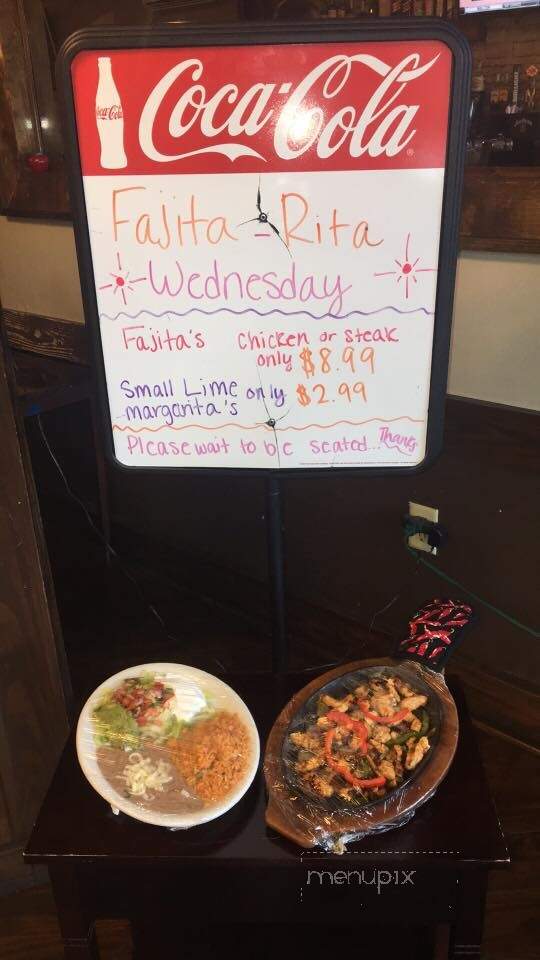 Coca-Cola
Coca-Cola
Fajita - Rita
Wednesday
Fajita's Chicken or Steak
only $8.99
Small Lime only $2.99
margarita's
Please wait to be seated... Thanks
menupix